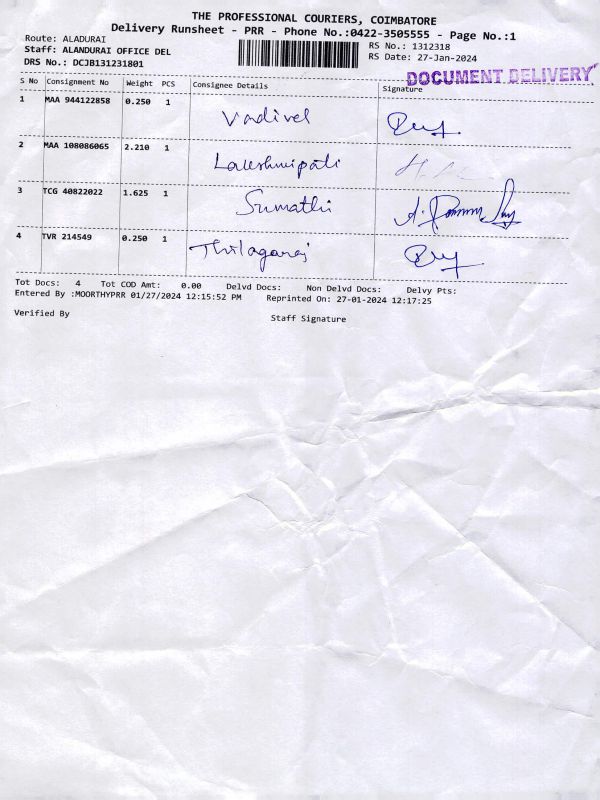 THE PROFESSIONAL COURIERS, COIMBATORE
Delivery Runsheet - PRR - Phone No.:0422-3505555 - Page No.:1
Route: ALADURAI
RS No.: 1312318
Staff: ALANDURAI OFFICE DEL
RS Date: 27-Jan-2024
DRS No.: DCJB131231801
DOCUMENT DELIVERY
S No Consignment No Weight PCS Consignee Details Signature
1 MAA 944122858 0.250 1 Vadivel
2 MAA 108086065 2.210 1 Lakshmipati
3 TCG 40822022 1.625 1 Sumathi
4 TVR 214549 0.250 1 Thilagaraj
Tot Docs: 4 Tot COD Amt: 0.00 Delvd Docs: Non Delvd Docs: Delvy Pts:
Entered By :MOORTHYPRR 01/27/2024 12:15:52 PM Reprinted On: 27-01-2024 12:17:25
Verified By Staff Signature